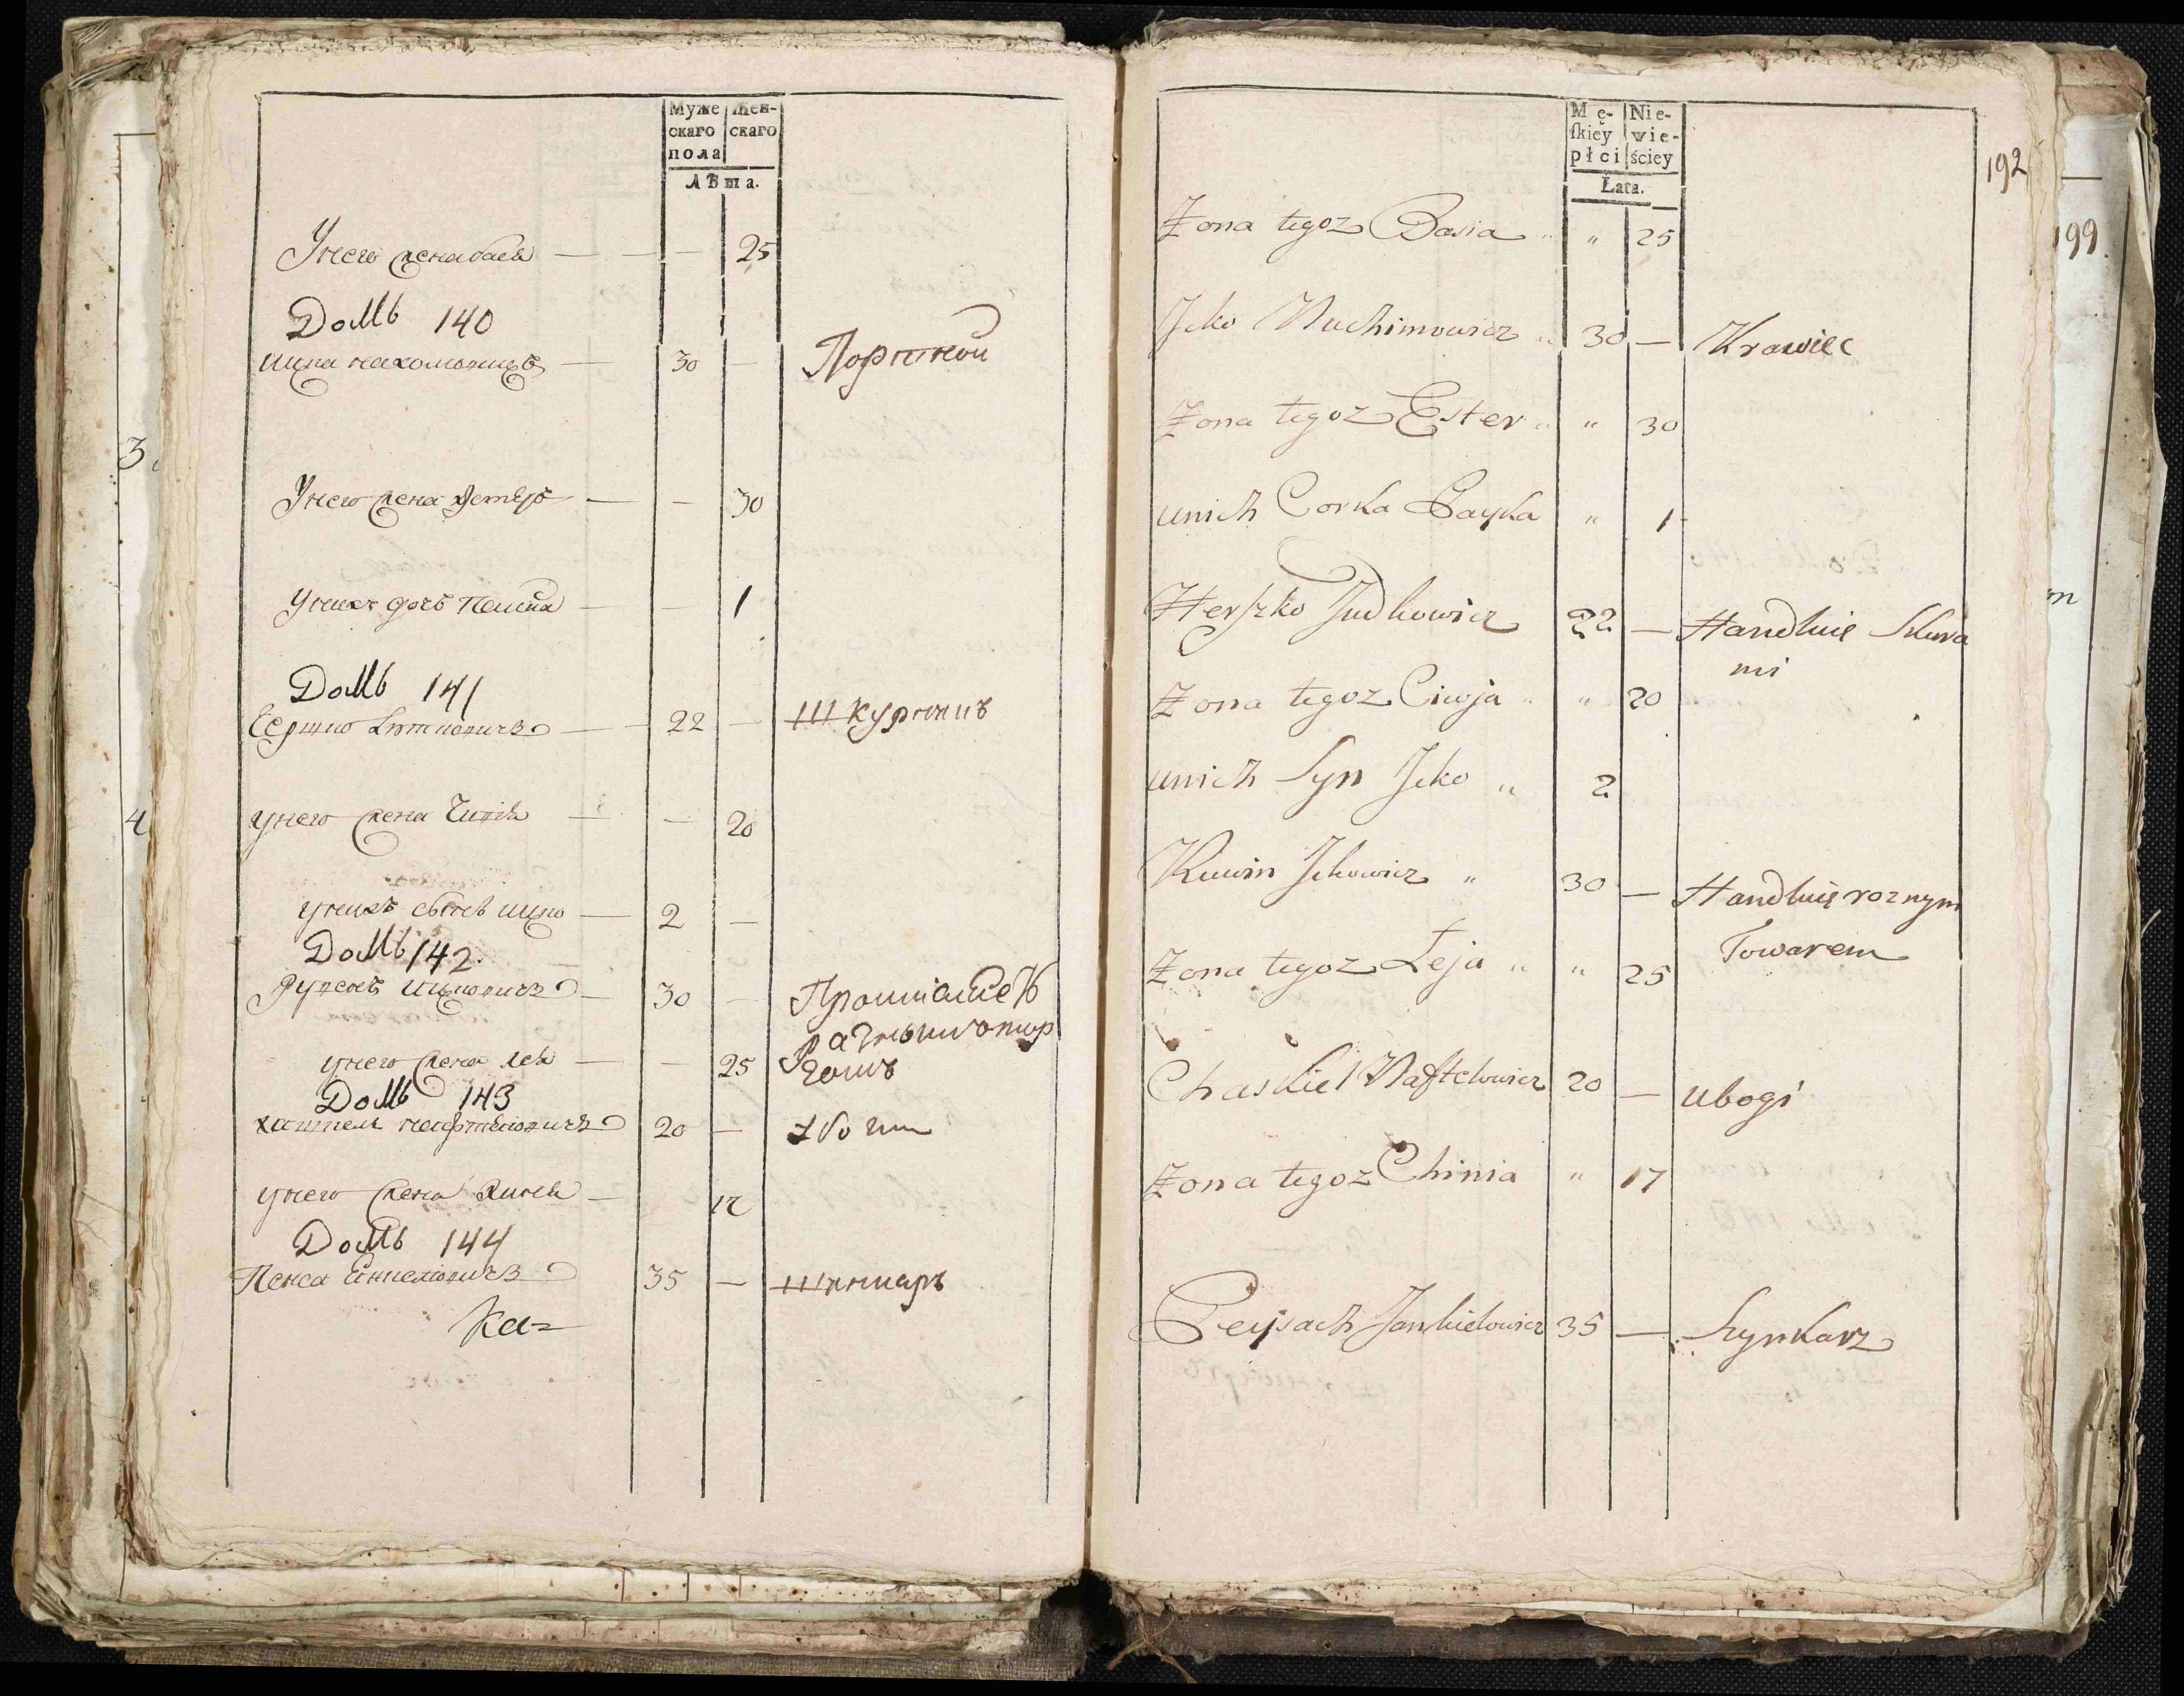 Муже Жен-
скаго скаго
пола
Лѣта.
Унего жена бася — — — 25
Домъ 140
ицка нахомовичъ — 30 — Портной
Унего жена Эстеръ — — 30
Унихъ дочь — — 1
Домъ 141
Гершко — 22 — Шкурникъ
унего жена Цивія — — 20
унихъ сынъ ицко — 2 —
Домъ 142.
Рувенъ ицковичъ — 30 —
унего жена лея — — 25
Домъ 143
20 — убогии
унего жена Хиня — 17
Домъ 144
Пейса Янкелювичъ 35 — Шинкаръ
Ка=
192
Mę- Nie-
skiey wie-
płci ściey
Łata.
Zona tegoz Basia „ „ 25
Jcko Nuchimowicz „ 30 — Krawiec
Zona tegoz Ester „ „ 30
unich Corka Payka „ 1
Herszko Judkowicz 22 — Handluię Skura
mi
Zona tegoz Ciwja „ „ 20
unich Syn Jcko „ 2
Ruwin Jckowicz „ 30 — Handluię roznym
Towarem
Zona tegoz Leja „ „ 25
Chaskiel Naftelowicz 20 — ubogi
Zona tegoz Chinia „ 17
Peysach Jankielowicz 35 — Szynkarz
199
3
4